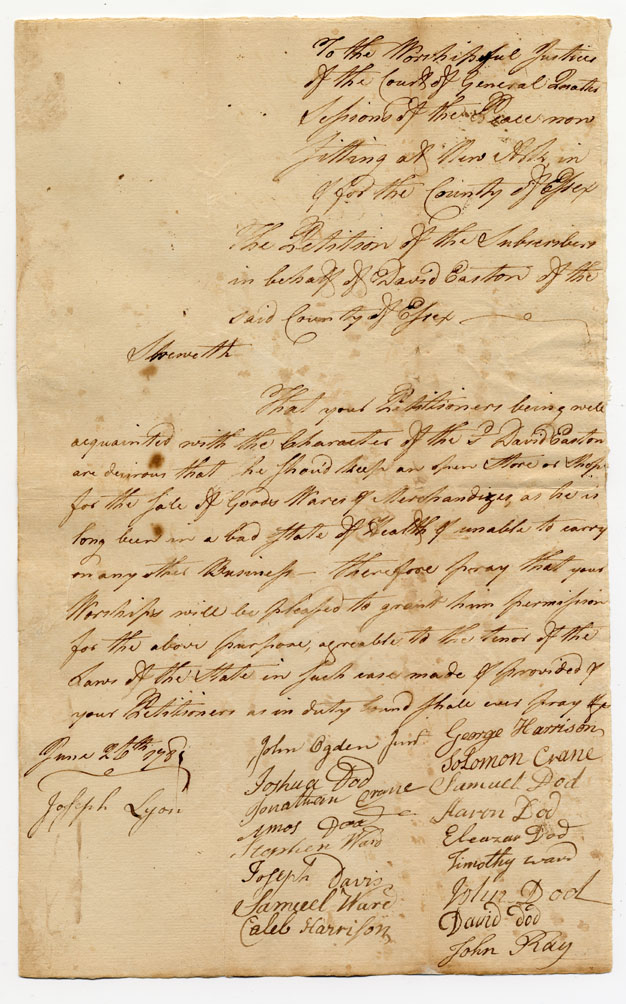 To the Worshipful Justices
of the Court of General Quarter
Sessions of the Peace now
sitting at New Ark, in
& for the County of Essex
The Petition of the Subscribers
in behalf of David Easton of the
said County of Essex
Sheweth
That your Petitioners being well
acquainted with the Character of the Sd David Easton
are desirous that he should keep an open Store or Shop
for the sale of Goods Wares & Merchandizes, as he is
long been in a bad state of Health & unable to carry
on any other Business — therefore pray that your
Worships will be pleased to grant him permission
for the above purpose, agreable to the tenor of the
Laws of the State in such case made & provided &
your Petitioners as in duty bound shall ever pray &c
June 26th
Joseph Lyon
John Ogden Junr
Joshua Dod
Jonathan Crane
Amos Dod
Stephen Ward
Joseph Davis
Samuel Ward
Caleb Harrison
George Harrison
Solomon Crane
Samuel Dod
Aaron Dod
Eleazar Dod
Timothy Ward
John Dod
David Dod
John Ray